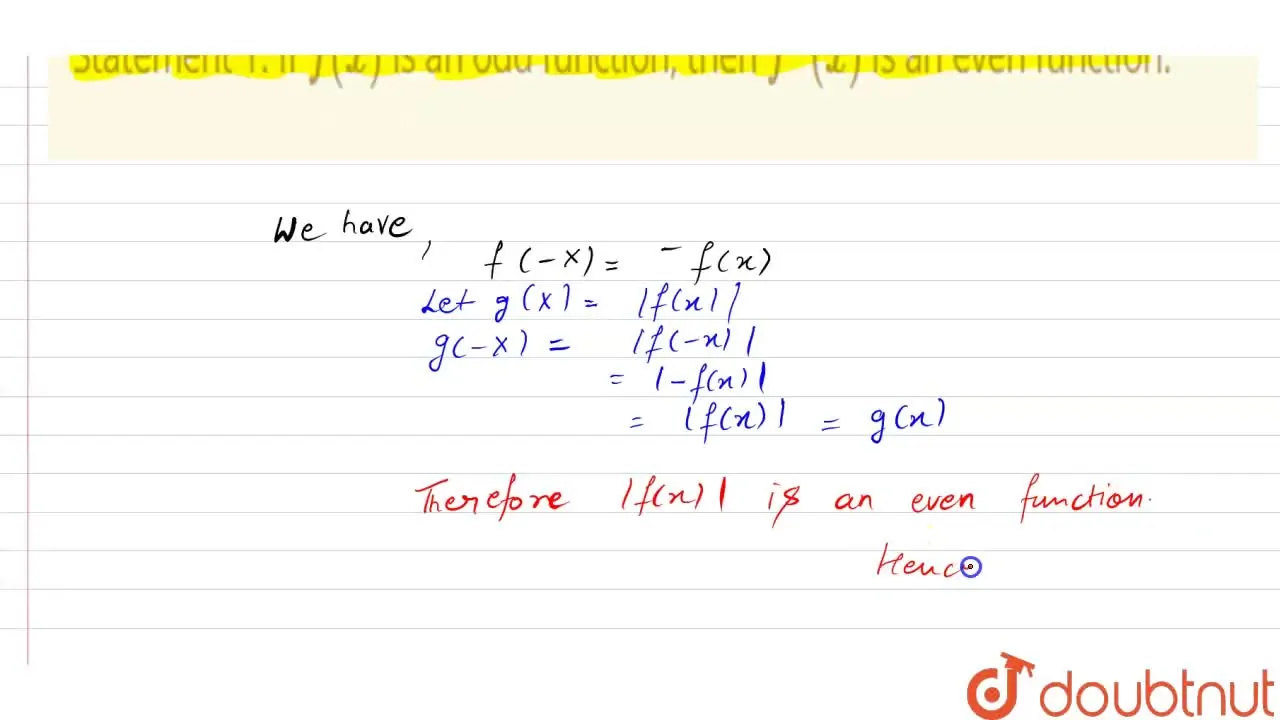 Statement 1: If f(x) is an odd function, then f'(x) is an even function.
We have,
f(-x) = -f(x)
Let g(x) = |f(x)|
g(-x) = |f(-x)|
= |-f(x)|
= |f(x)| = g(x)
Therefore |f(x)| is an even function.
Henc
doubtnut